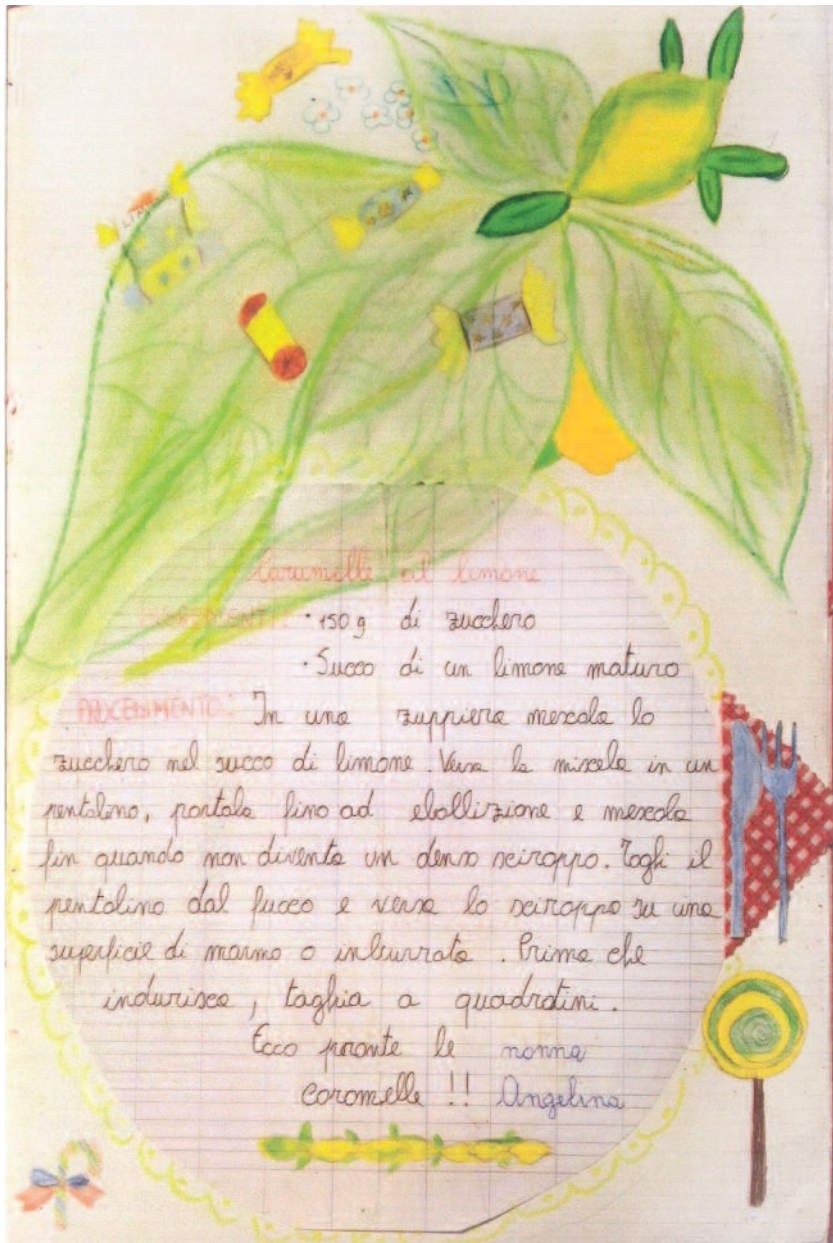 Caramelle al limone
INGREDIENTI: • 150 g di zucchero
• Succo di un limone maturo
PROCEDIMENTO: In una zuppiera mescola lo
zucchero nel succo di limone. Versa la miscela in un
pentolino, portala fino ad ebollizione e mescola
fin quando non diventa un denso sciroppo. Togli il
pentolino dal fuoco e versa lo sciroppo su una
superficie di marmo o imburrata. Prima che
indurisca, taglia a quadratini.
Ecco pronte le
caramelle!!
nonna
Angelina